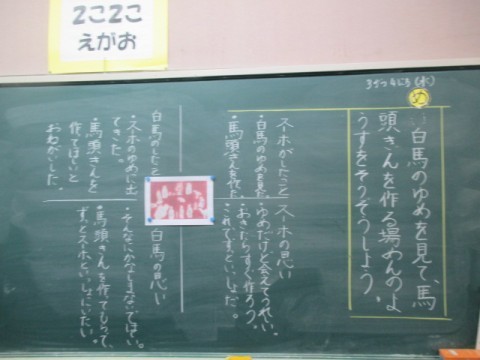 2こ2こ
えがお
3がつ4にち(水)
め
白馬のゆめを見て、馬
頭きんを作る場めんのよ
うすをそうぞうしよう。
スーホがしたこと
・白馬のゆめを見た。
・馬頭きんを作った。
スーホの思い
・ゆめだけど会えてうれしい。
・おきたらすぐ作ろう。
・これでずっといっしょだ。
白馬のしたこと
・スーホのゆめに出
てきた。
・馬頭きんを
作ってほしいと
おねがいした。
白馬の思い
・そんなにかなしまないでほしい。
・馬頭きんを作ってもらって、
ずっとスーホといっしょにいたい。